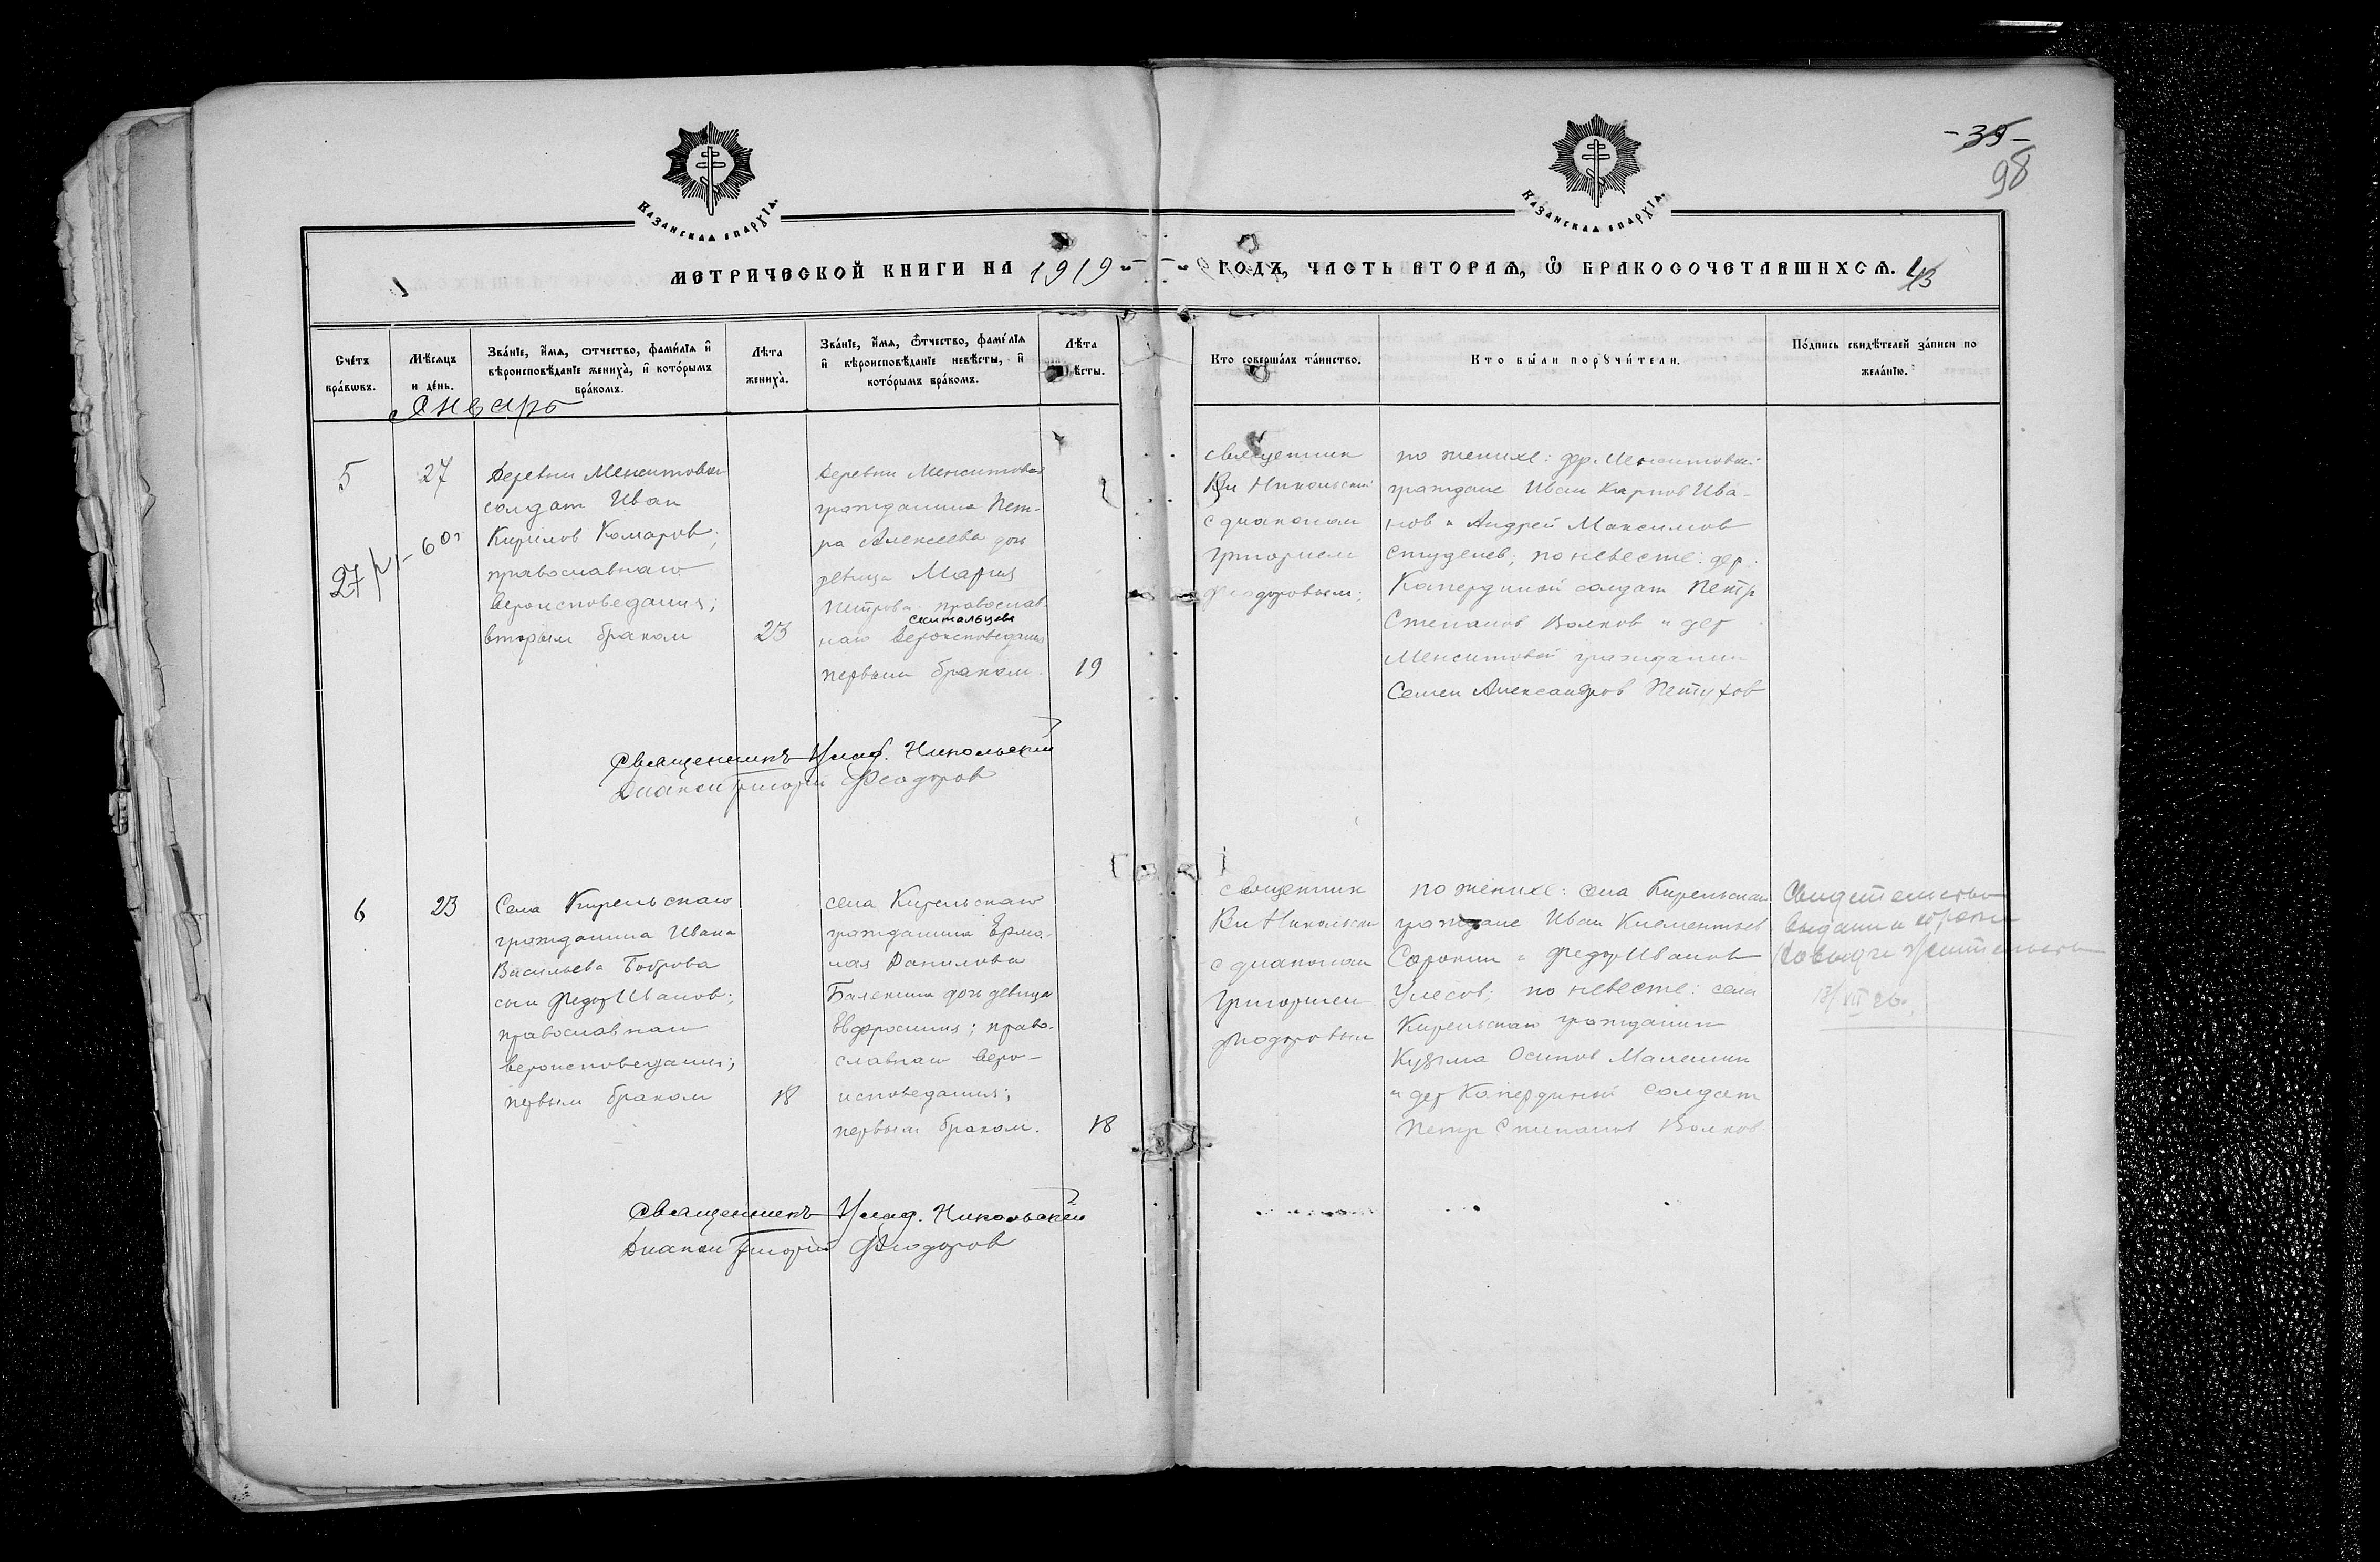 -35-
98
Казанская епархїа.
Казанская епархїа.
МЕТРИЧЕСКОЙ КНИГИ НА 1919 ГОДЪ, ЧАСТЬ ВТОРАЯ, Ѽ БРАКОСОЧЕТАВШИХСЯ.
Сче́тъ бра́кѡвъ.
Мѣ́сяцъ и де́нь.
Зва́нїе, и҆́мя, ѻ҆́тчество, фами́лїя и҆ вѣроисповѣ́данїе жениха̀, и҆ кото́рымъ бра́комъ.
Лѣ́та жениха̀.
Зва́нїе, и҆́мя, ѻ҆́тчество, фами́лїя и҆ вѣроисповѣ́данїе невѣ́сты, и҆ кото́рымъ бра́комъ.
Лѣ́та
ѣсты.
Кто соверша́лъ та́инство.
Кто бы́ли порꙋчи́тели.
По́дпись свидѣ́телей за́писи по жела́нїю.
Январь
5
27
Деревни Менситовой
солдат Иван
Кирилов Комаров;
православнаго
вероисповедания;
вторым браком
23
Деревни Менситовой
гражданина Пет-
ра Алексеева дочь
девица Мария
Петрова православ
Скитальцева
наго вероисповедания
первым браком.
19
священник
Вл Никольский
с диаконом
Григорием
Феодоровым;
по женихе: дер. Менситовой
граждане Иван Карпов Ива-
нов и Андрей Максимов
Студенев; по невесте: дер.
Капердиной солдат Петр
Степанов Волков и дер
Менситовой гражданин
Семен Александров Петухов
27
60
Священникъ Влад. Никольскій
Диакон Григорій Феодоров
6
23
Села Кирельскаго
гражданина Ивана
Васильева Боброва
сын Федор Иванов;
православнаго
вероисповедания;
первым браком
18
села Кирельскаго
гражданина Ермо-
лая Данилова
Балекина дочь девица
Евфросиния; право-
славнаго веро-
исповедания;
первым браком.
18
священник
Вл Никольски
с диаконом
Григорием
Феодоровым
по женихе: села Кирельскаго
граждане Иван Клементьев
Сорокин и Федор Иванов
Улесов; по невесте: села
Кирельскаго гражданин
Кузьма Осипов Малешин
и дер Капердиной солдат
Петр Степанов Волков
Свидетельство
выдано
13/VII 26.
Священникъ Влад. Никольскій
Диакон Григорій Феодоров